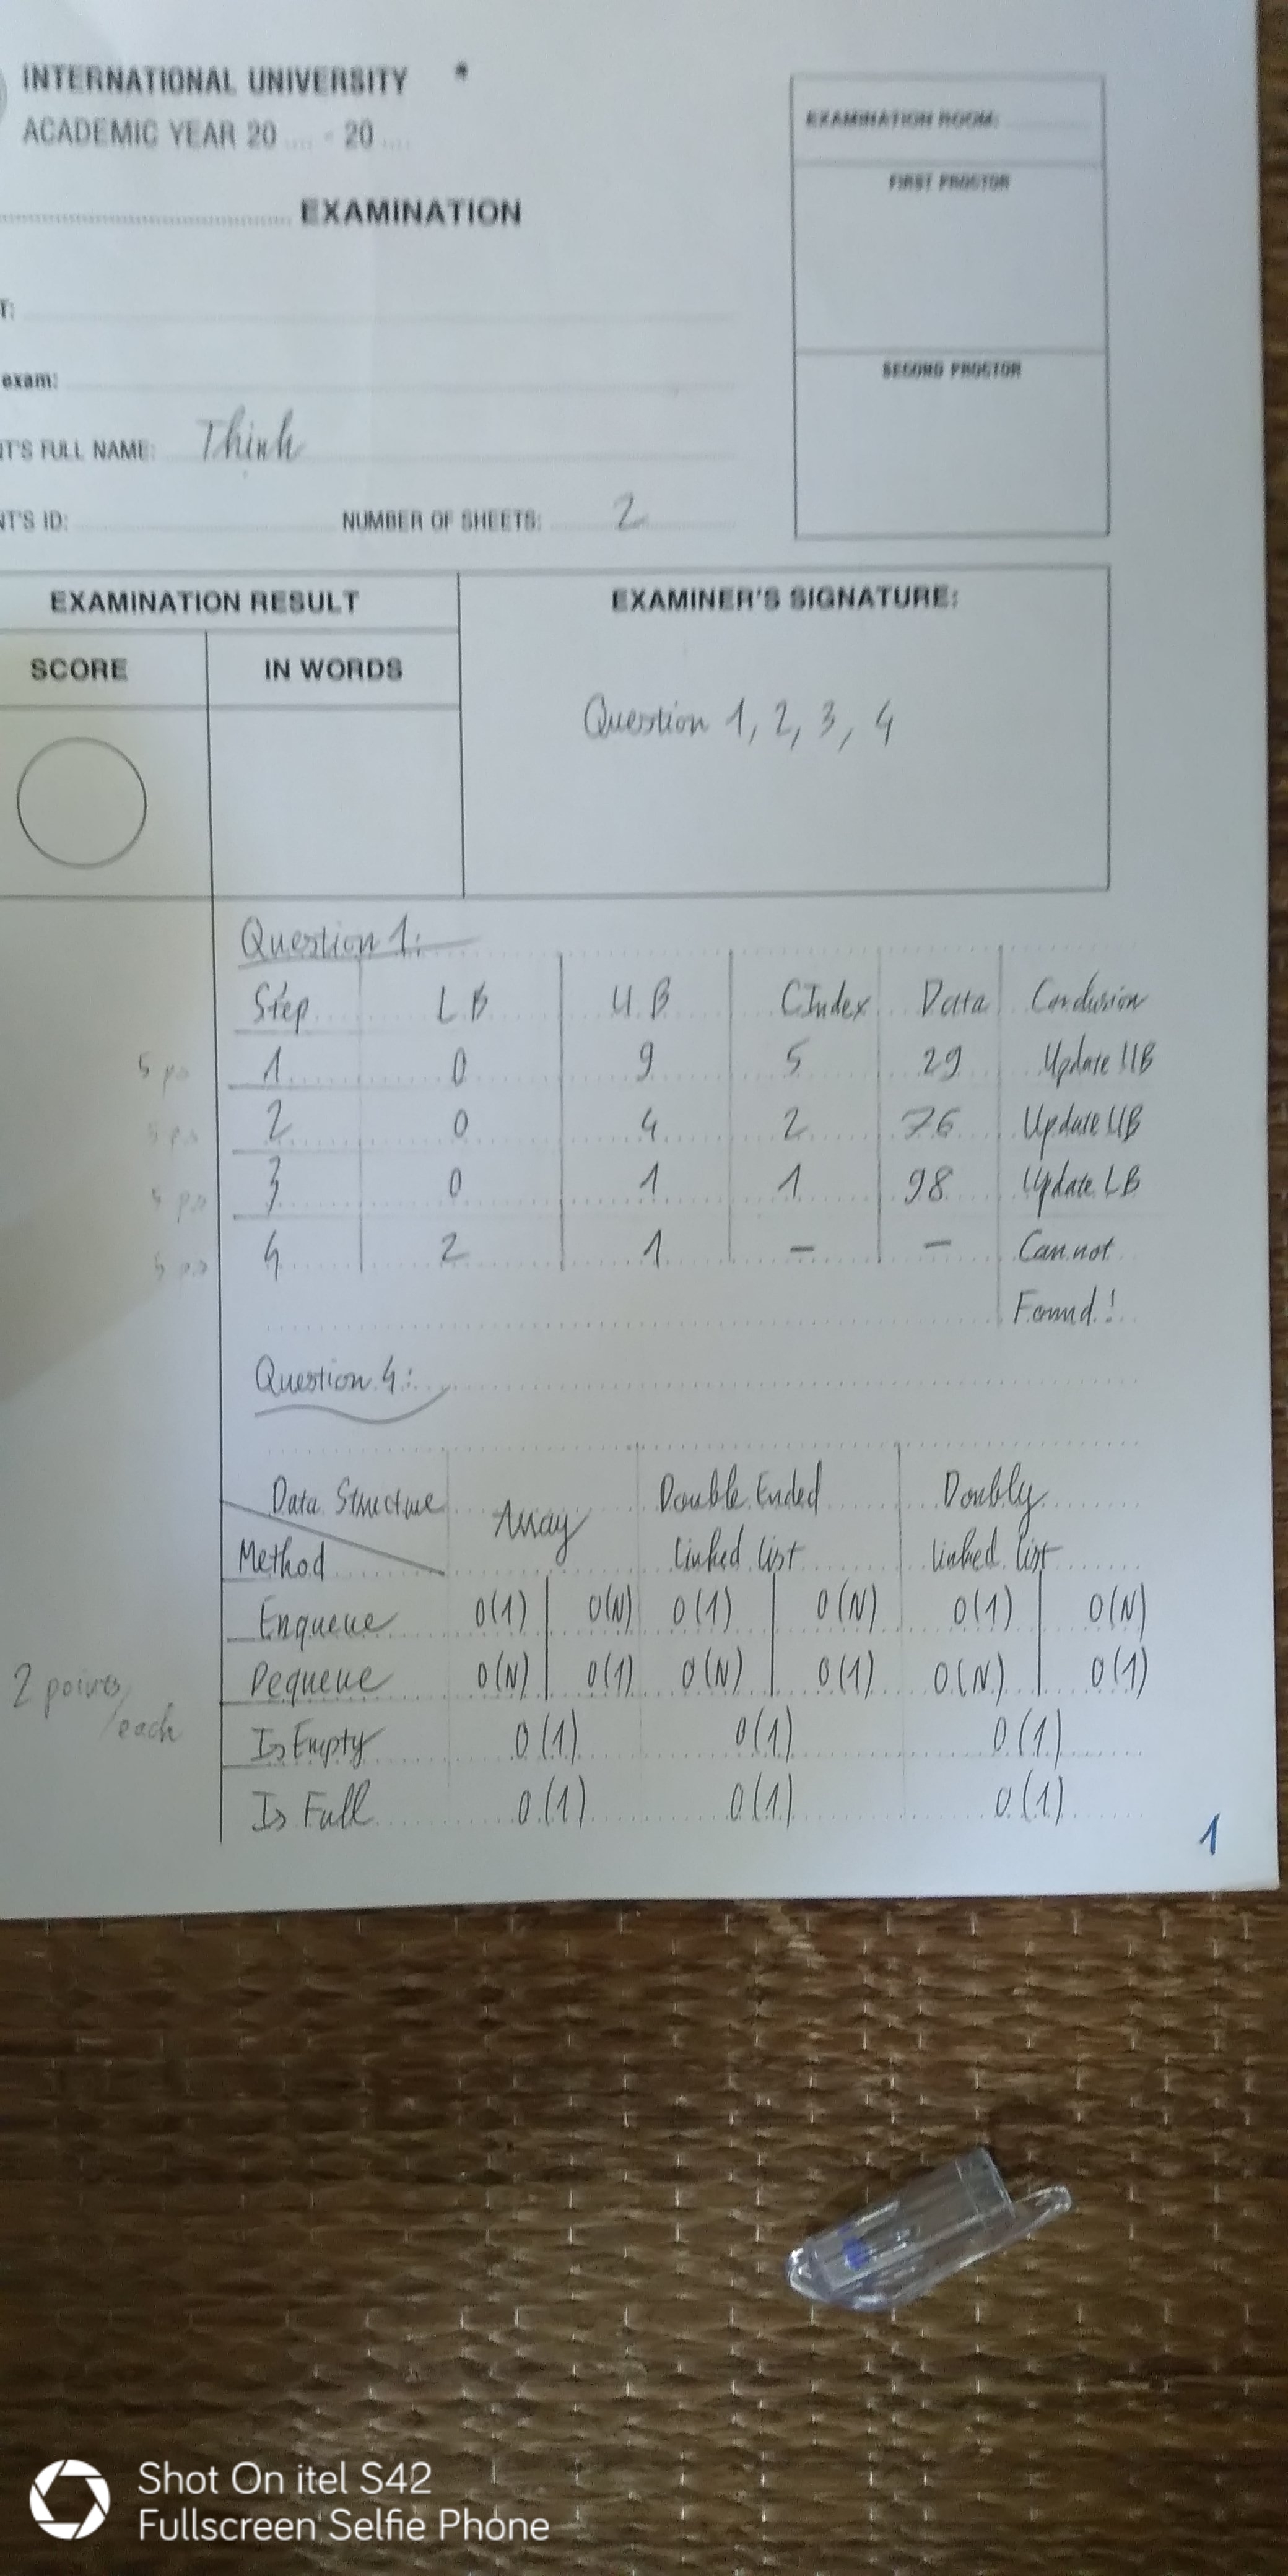 INTERNATIONAL UNIVERSITY
ACADEMIC YEAR 20 .... - 20 ....
EXAMINATION
EXAMINATION ROOM:
FIRST PROCTOR
SECOND PROCTOR
T:
exam:
T'S FULL NAME: Thinh
NT'S ID: NUMBER OF SHEETS: 2
EXAMINATION RESULT
SCORE IN WORDS
EXAMINER'S SIGNATURE:
Question 1, 2, 3, 4
Question 1:
Step LB UB CIndex Data Conclusion
5 po 1 0 9 5 29 Update UB
5 po 2 0 4 2 76 Update UB
5 po 3 0 1 1 98 Update LB
5 po 4 2 1 – – Can not
Found!
Question 4:
Data Structure Array Double Ended Doubly
Method linked list linked list
Enqueue O(1) O(N) O(1) O(N) O(1) O(N)
Dequeue O(N) O(1) O(N) O(1) O(N) O(1)
2 points/each
Is Empty O(1) O(1) O(1)
Is Full O(1) O(1) O(1)
1
Shot On itel S42
Fullscreen Selfie Phone